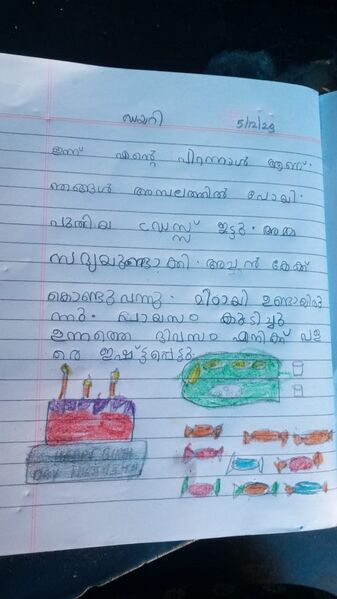 ഡയറി 5/12/23
ഇന്ന് എന്റെ പിറന്നാൾ ആണ്.
ഞങ്ങൾ അമ്പലത്തിൽ പോയി.
പുതിയ ഡ്രസ്സ് ഇട്ടു. അമ്മ
സദ്യയുണ്ടാക്കി. അച്ഛൻ കേക്ക്
കൊണ്ടുവന്നു. മിഠായി ഉണ്ടായിരു
ന്നു. പായസം കുടിച്ചു
ഇന്നത്തെ ദിവസം എനിക്ക് വള
രെ ഇഷ്ട്ടപ്പെട്ടു.
HAPPY BIRTH
DAY